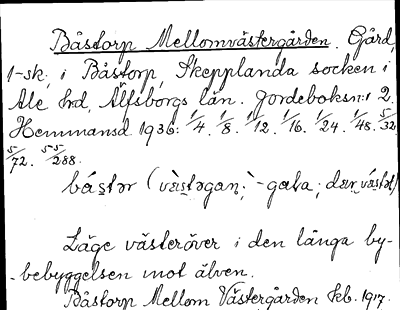 Båstorp Mellomvästergården. Gård,
1-sk, i Båstorp, Skepplanda socken i
Ale hd, Älfsborgs län. Jordeboksn:r 2.
Hemmansd 1936: 1/4. 1/8. 1/12. 1/16. 1/24. 1/48. 5/32.
5/72. 55/288.
Läge västeröver i den långa by-
-bebyggelsen mot älven.
Båstorp Mellom Västergården Kb. 1917.